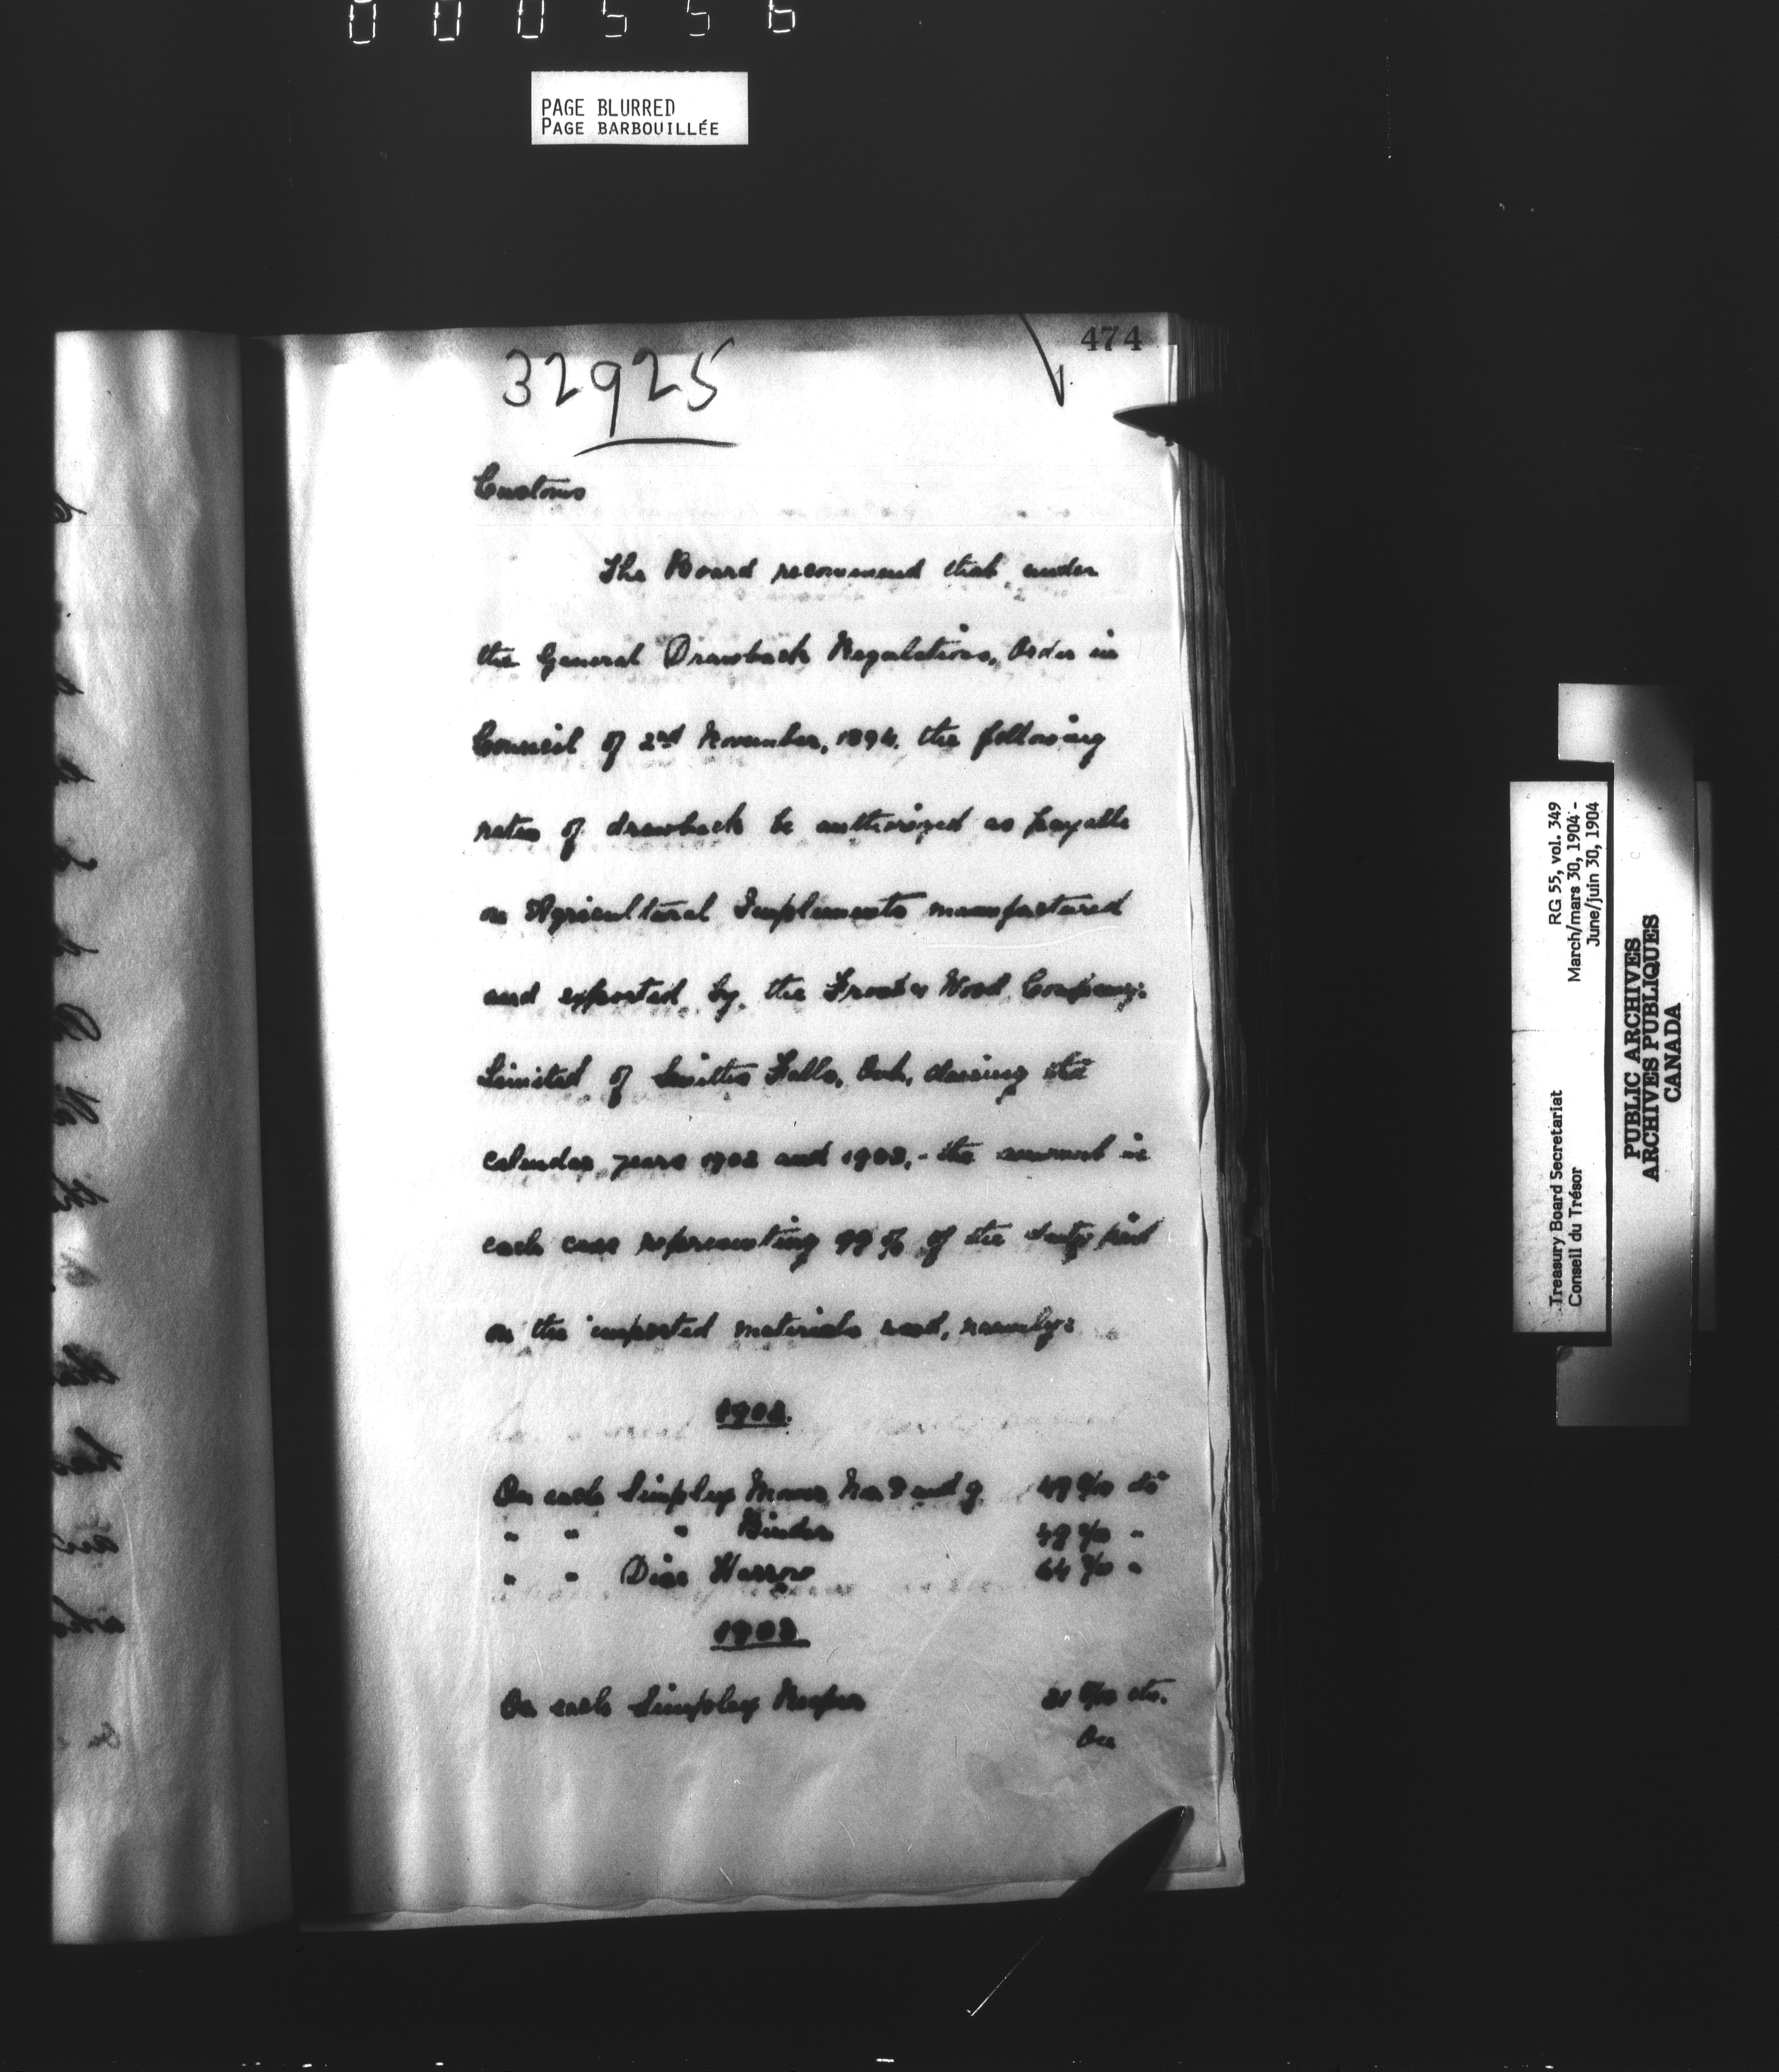 000556
PAGE BLURRED
PAGE BARBOUILLÉE
474
32925
Customs
The Board recommend that, under
the General Drawback Regulations, Order in
Council of 2nd November, 1894, the following
rates of drawback be authorized as payable
on Agricultural Implements manufactured
and exported by the Frost & Wood Company:
Limited of Smiths Falls, Ont., during the
calendar years 1902 and 1903, - the amount in
each case representing 99% of the duty paid
on the imported materials used, namely:
1902.
On each Simplex Mower No. 8 and 9 cts
" " " Binder "
" " Disc Harrow "
1903
On each Simplex Reaper cts.
On
RG 55, vol. 349
March/mars 30, 1904 -
June/juin 30, 1904
Treasury Board Secretariat
Conseil du Trésor
PUBLIC ARCHIVES
ARCHIVES PUBLIQUES
CANADA